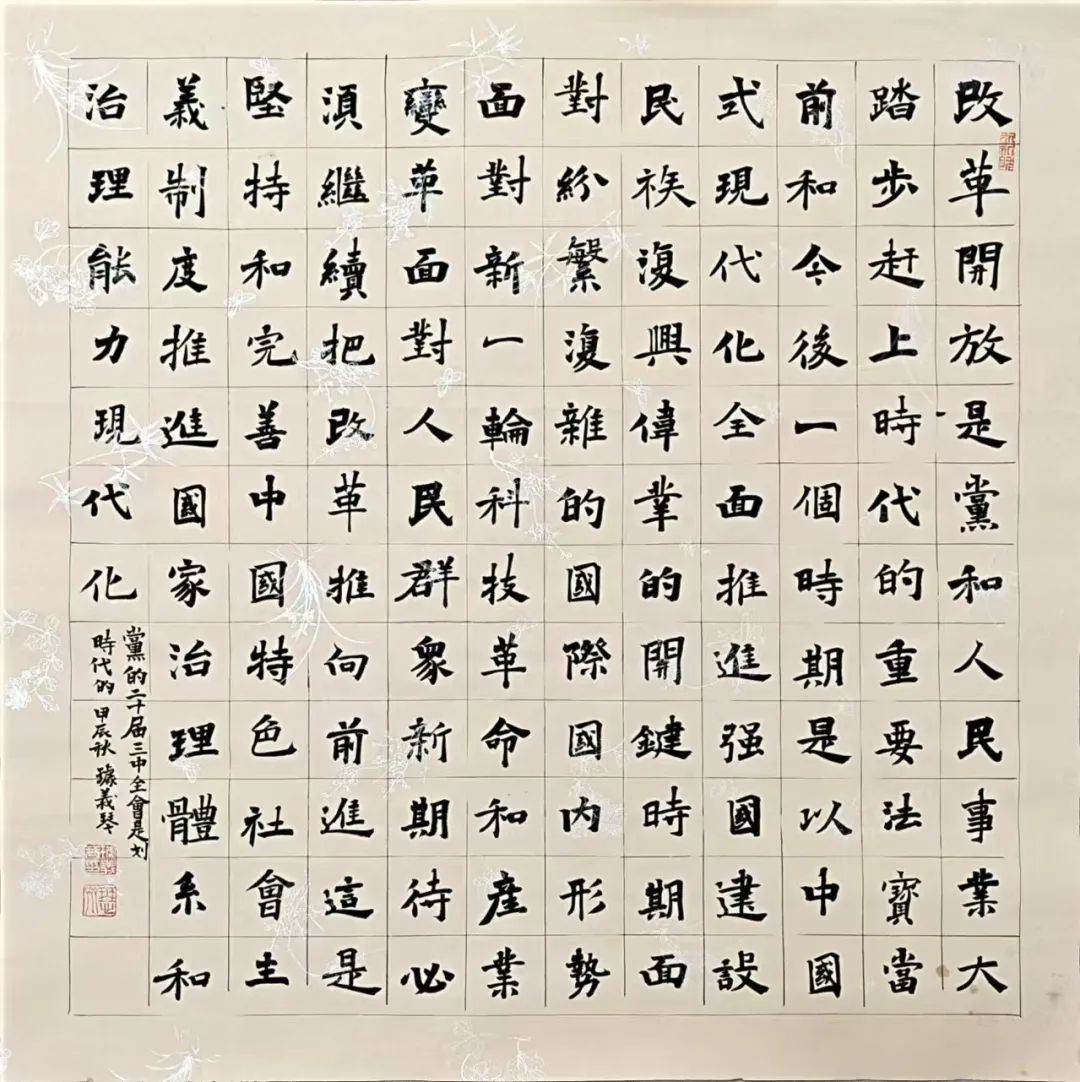 改革開放是黨和人民事業大
踏步赶上時代的重要法寶當
前和今後一個時期是以中國
式現代化全面推進强國建設
民族復興偉業的開鍵時期面
對紛繁復雜的國際國内形勢
面對新一輪科技革命和産業
變革面對人民群衆新期待必
須繼續把改革推向前進這是
堅特和完善中國特色社會主
義制度推進國家治理體系和
治理能力現代化
黨的二十届三中全會是划
時代的 甲辰秋 義琴